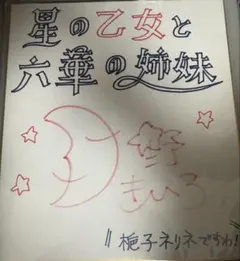 星の乙女と
六華の姉妹
野
きいろ
〃梔子ネリネですわ!